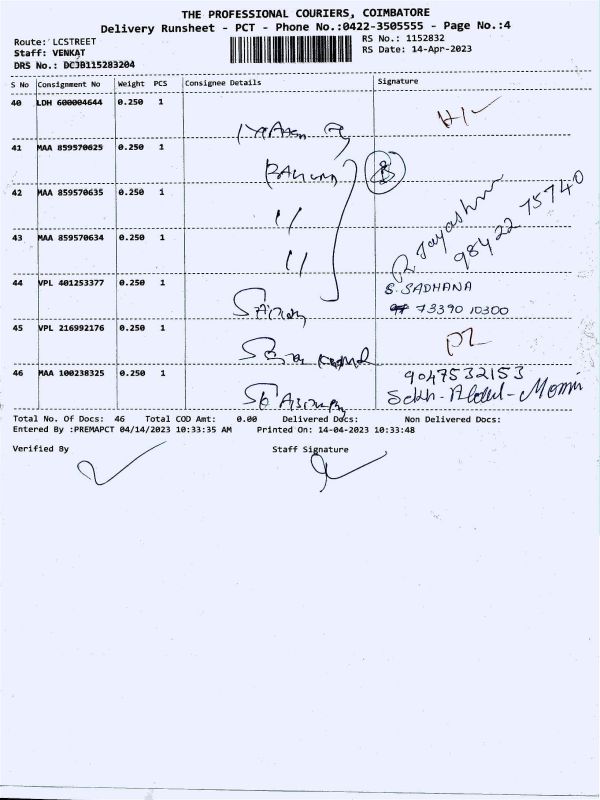 THE PROFESSIONAL COURIERS, COIMBATORE
Delivery Runsheet - PCT - Phone No.:0422-3505555 - Page No.:4
Route: LCSTREET RS No.: 1152832
Staff: VENKAT RS Date: 14-Apr-2023
DRS No.: DCJB115283204
S No Consignment No Weight PCS Consignee Details Signature
40 LDH 600004644 0.250 1
41 MAA 859570625 0.250 1
42 MAA 859570635 0.250 1 "
R. Jayashree
98422 75740
43 MAA 859570634 0.250 1 "
44 VPL 401253377 0.250 1 S. SADHANA
73390 10300
45 VPL 216992176 0.250 1
46 MAA 100238325 0.250 1 9047532153
Sekh-Abdul-Momin
Total No. Of Docs: 46 Total COD Amt: 0.00 Delivered Docs: Non Delivered Docs:
Entered By :PREMAPCT 04/14/2023 10:33:35 AM Printed On: 14-04-2023 10:33:48
Verified By Staff Signature